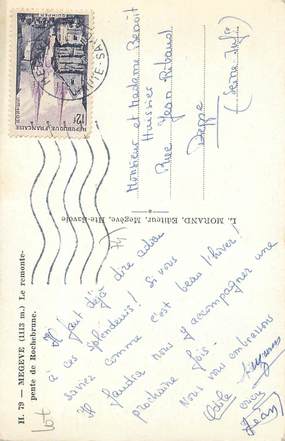 H. 79 - MEGEVE (1113 m.) Le remonte-
pente de Rochebrune.
Il faut déjà dire adieu
à ces splendeurs! Si vous
saviez comme c'est beau l'hiver!
Il faudra nous y accompagner une
prochaine fois.
Nous vous embrassons
Jean
L. MORAND, Editeur, Megève, Hte-Savoie
74
Lot
Monsieur et Madame Benoît
Huissier
Rue Jean Ribaud
Dieppe
(Seine-Infre)
REPUBLIQUE FRANCAISE
12f
QUIMPER